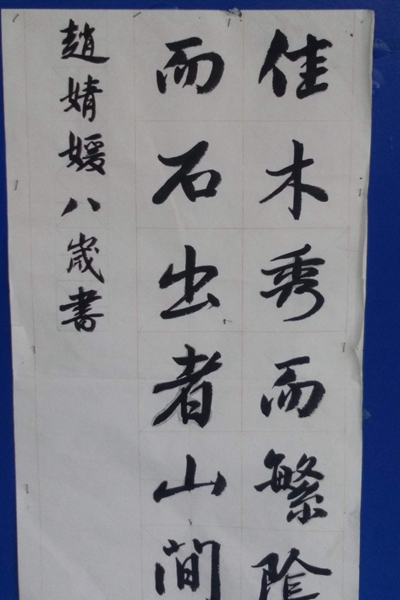 佳木秀而繁陰
而石出者山間
趙婧媛八歲書